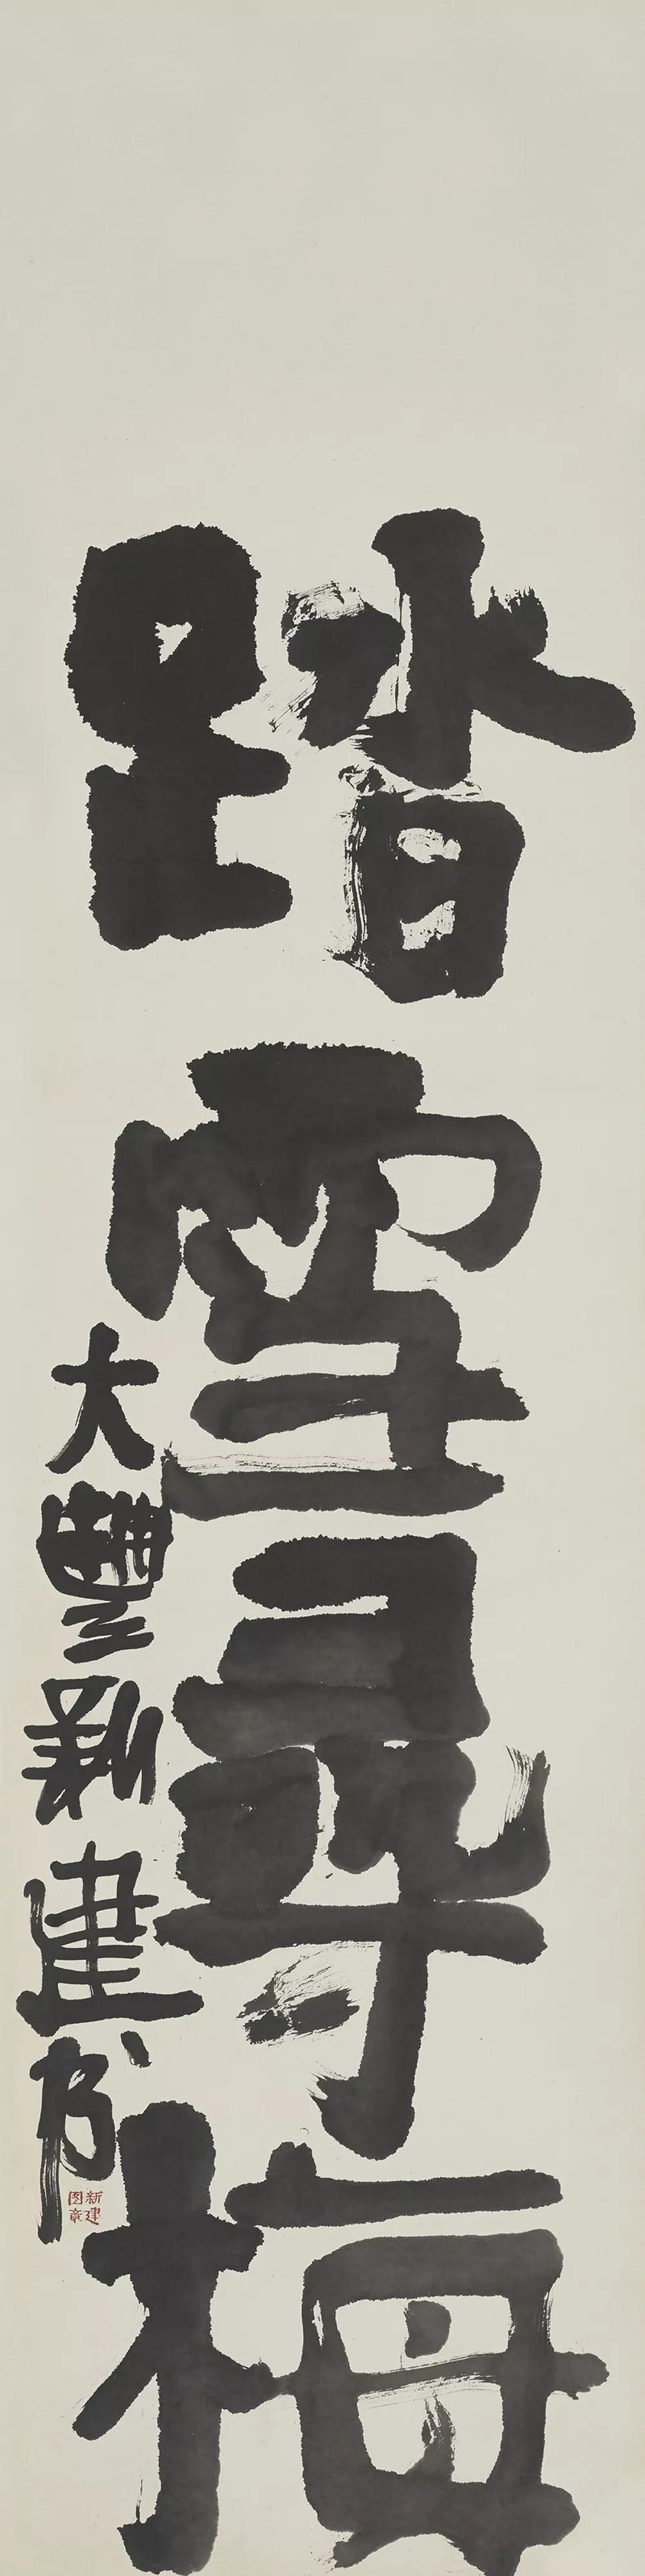 踏雪尋梅
大豐新建书
新建图章